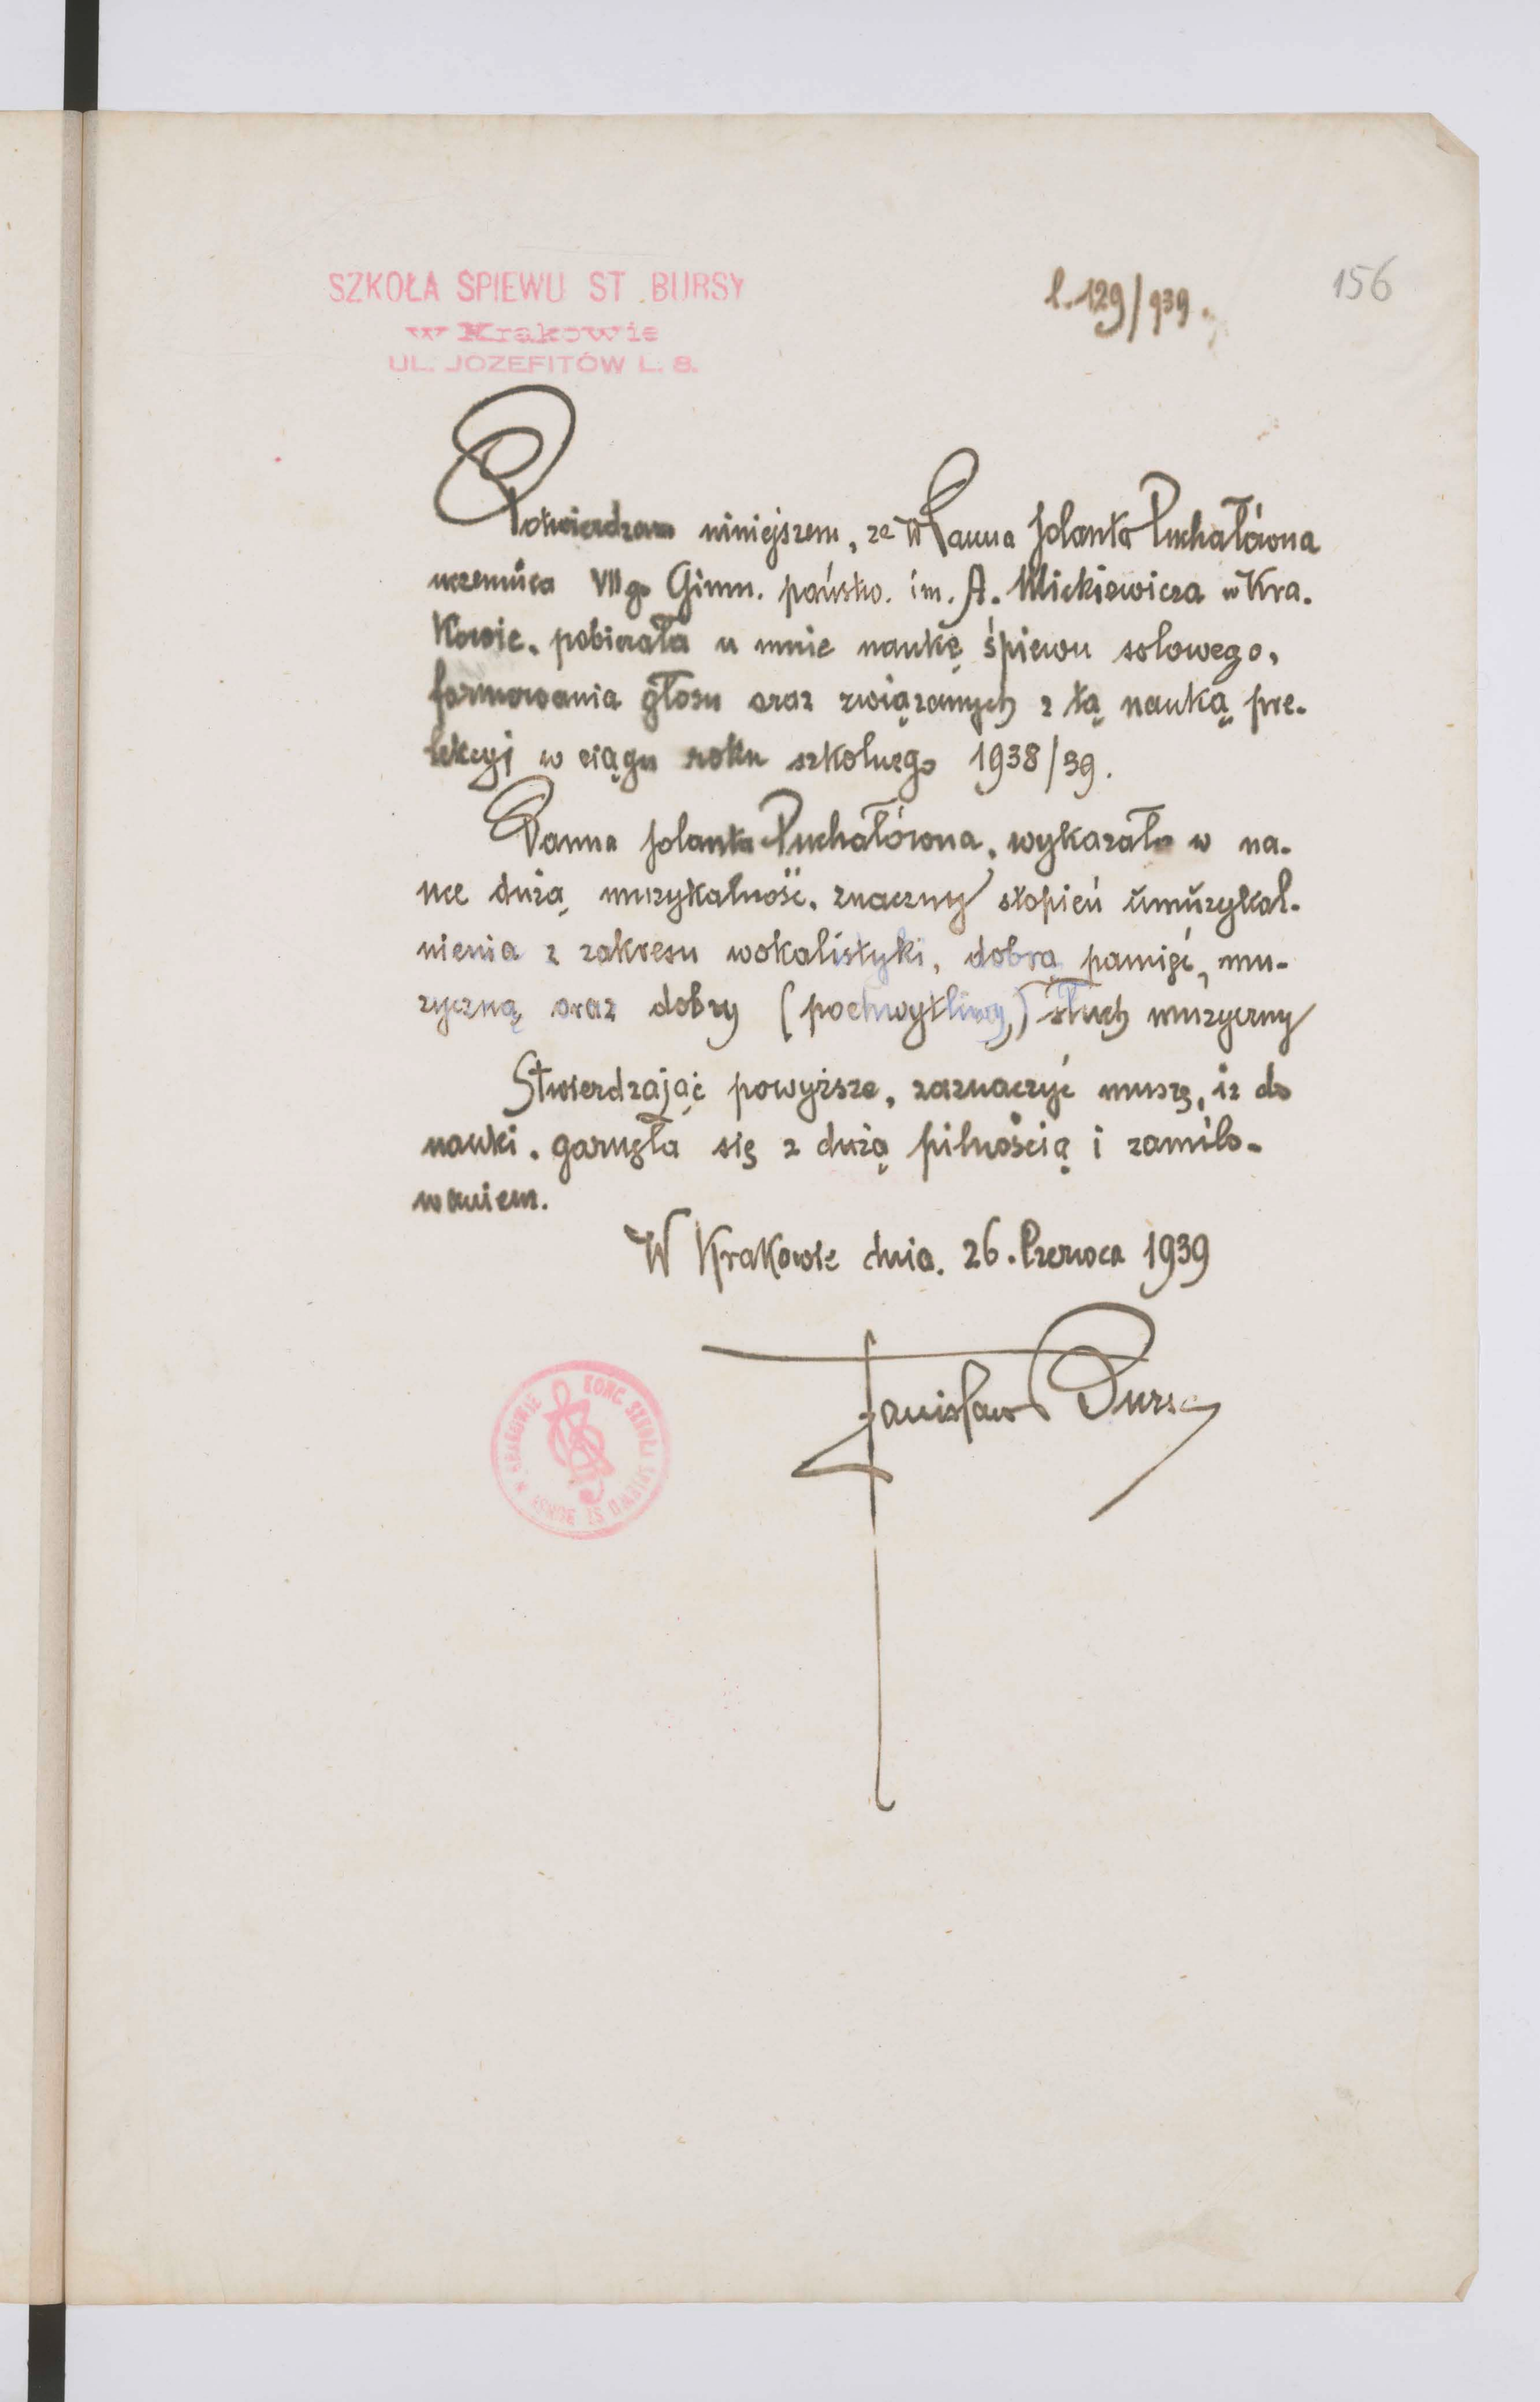 SZKOŁA ŚPIEWU ST. BURSY
w Krakowie
UL. JÓZEFITÓW L. 8.
l. 129/939.
156
Potwierdzam niniejszem, że W Panna Jolanta Puchałówna
uczennica VII go Gimn. państw. im. A. Mickiewicza w Kra-
kowie, pobierała u mnie naukę śpiewu solowego,
formowania głosu oraz związanych z tą nauką pre-
lekcyj w ciągu roku szkolnego 1938/39.
Panna Jolanta Puchałówna, wykazała w na-
uce dużą muzykalność, znaczny stopień umuzykal-
nienia z zakresu wokalistyki, dobrą pamięć mu-
zyczną oraz dobry (pochwytliwy) słuch muzyczny
Stwierdzając powyższe, zaznaczyć muszę, iż do
nauki, garnęła się z dużą pilnością i zamiło-
waniem.
W Krakowie dnia. 26. Czerwca 1939
Stanisław Bursa
KONC. SZKOŁA ŚPIEWU ST. BURSY W KRAKOWIE